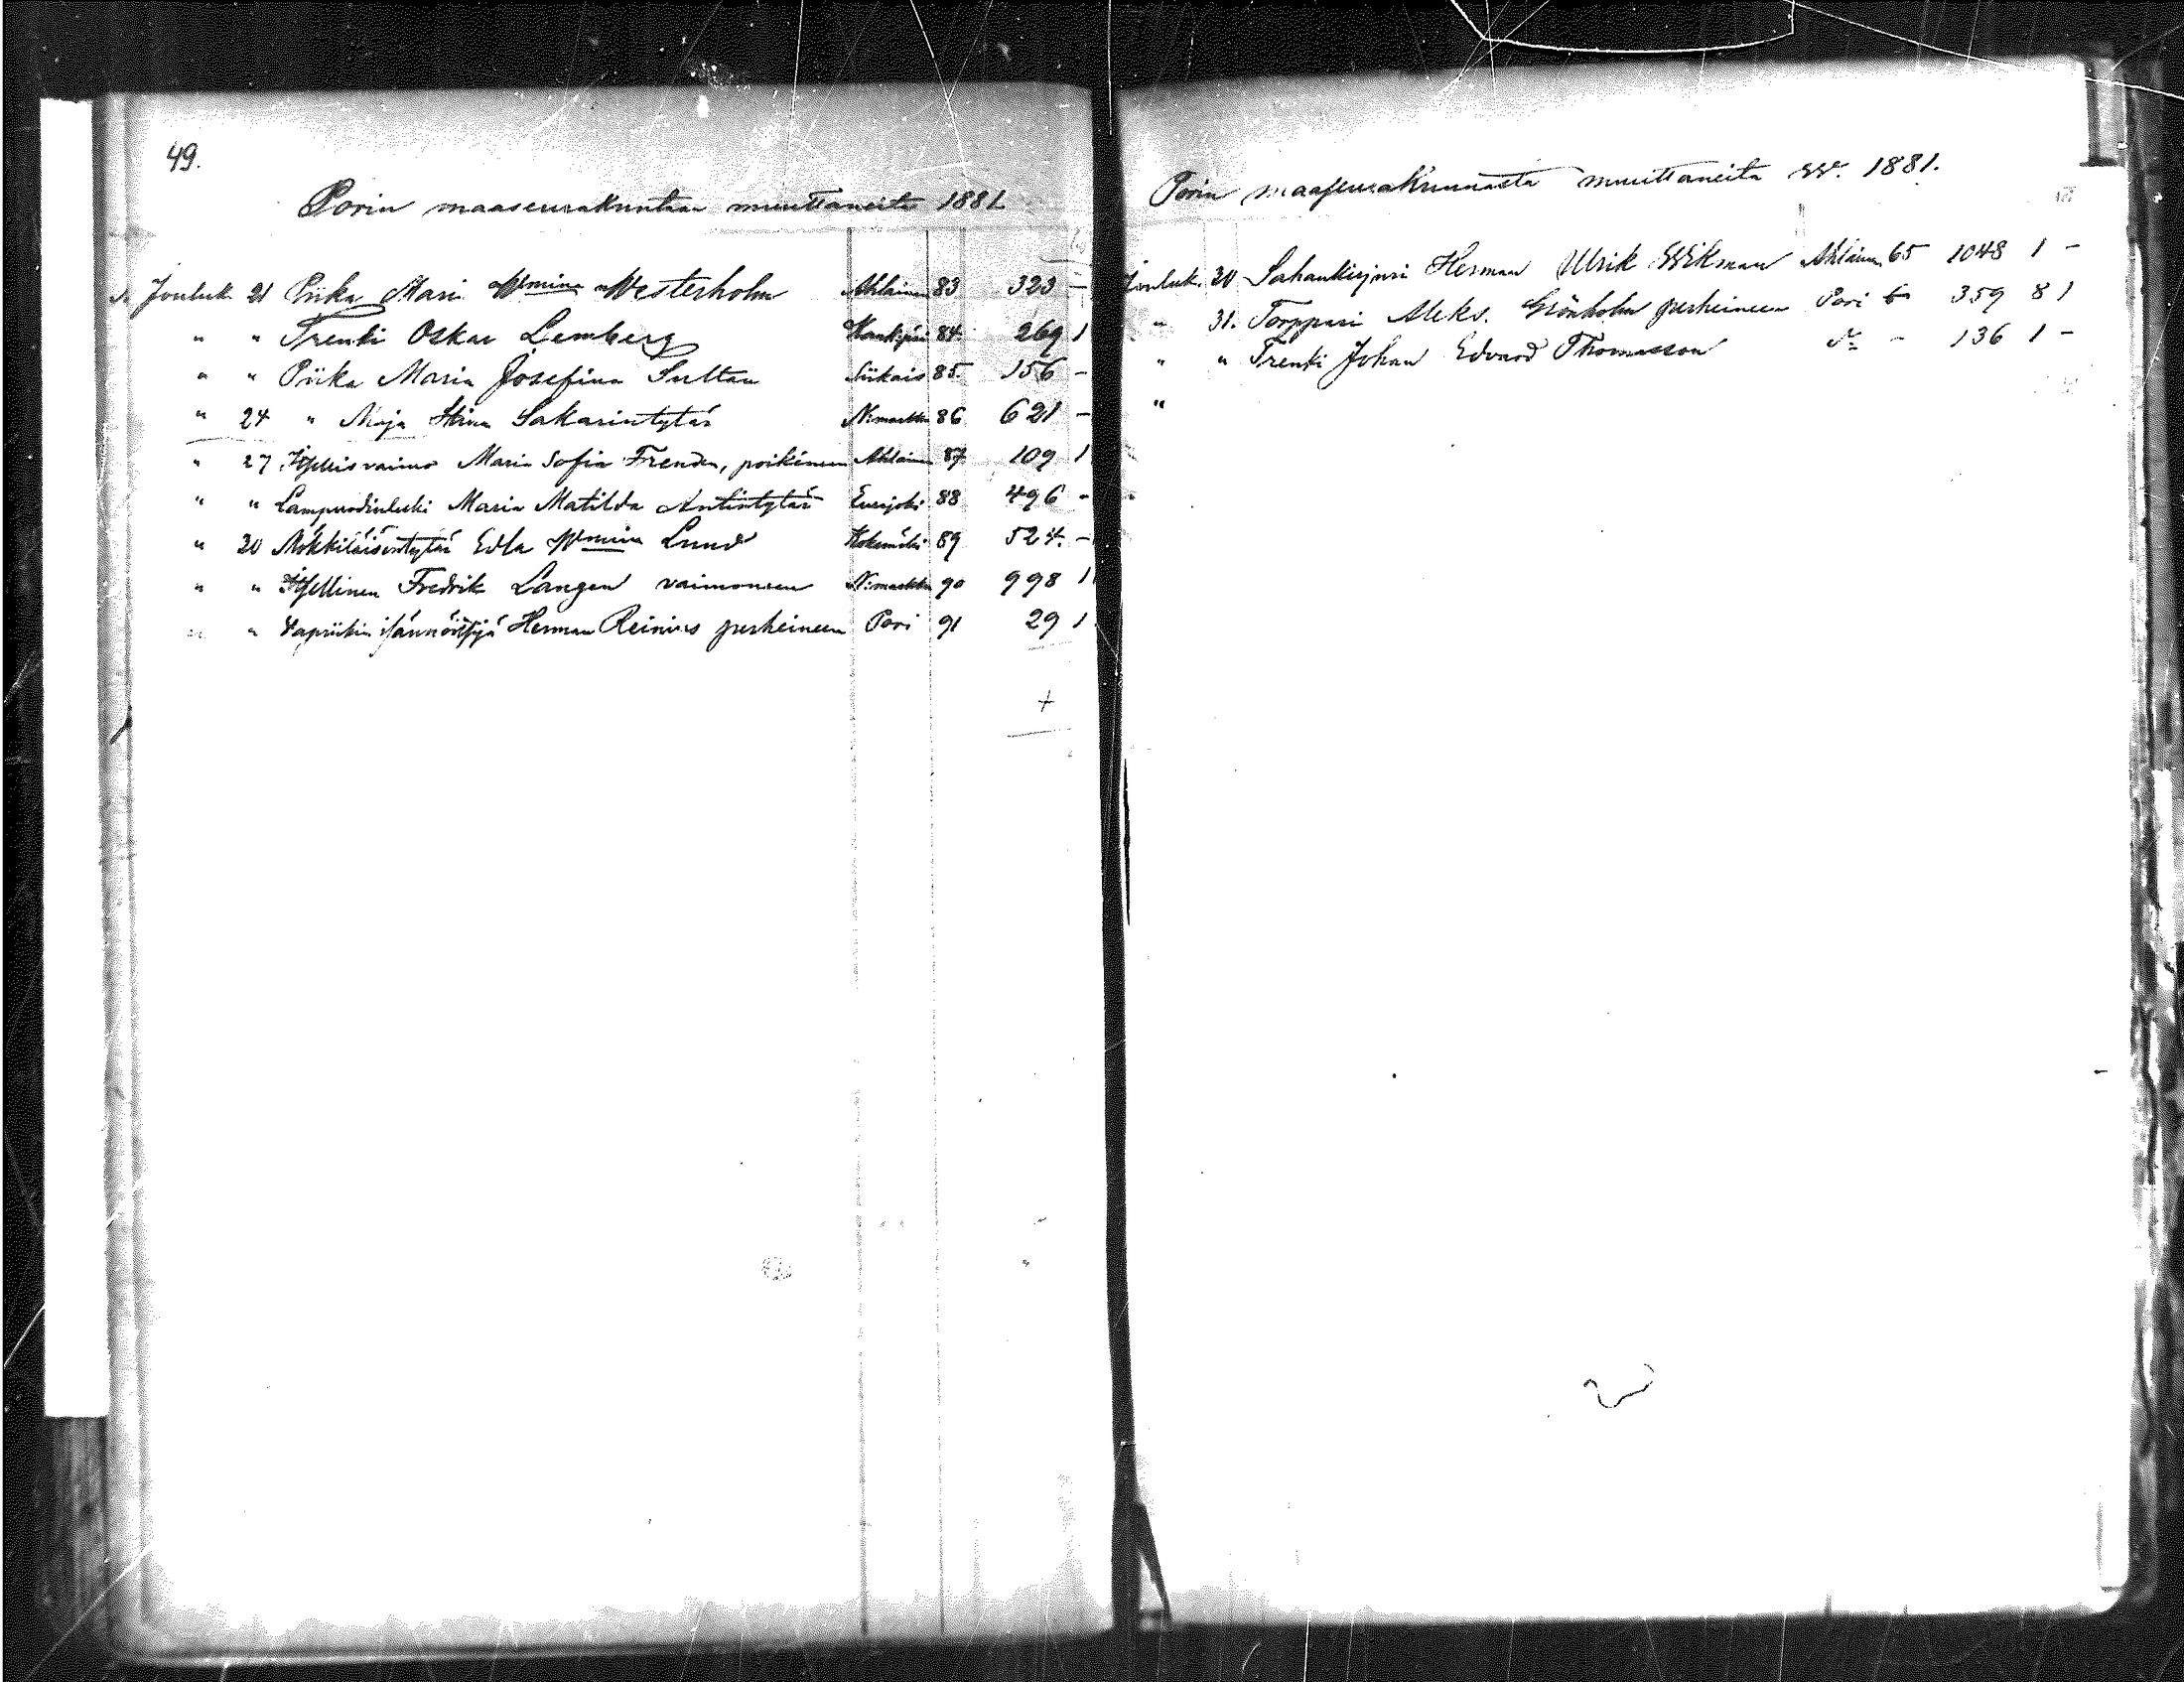 49.
Porin maaseurakuntaan muuttaneita 1881.
Jouluk. 21 Piika Maria Wmina Westerholm Ahlainen 83 323 –
" " Trenki Oskar Lemberg Kankipää 84. 269 1
" " Piika Maria Josefina Sultan Siikais 85. 156 –
" 24 " Maja Stina Sakarintytär N:markku 86 621 –
" 27 Itsellisvaimo Maria Sofia Frendin, poikineen Ahlainen 87. 109 1
" " Lampuodinleski Maria Matilda Antintytär Eurajoki 88 496 -
" 30 Mökkiläisentytär Edla Wmina Lund Kokemäki 89 524. –
" " Itsellinen Fredrik Langen vaimoneen N:markku 90 998 1
" " Vapriikin isännöitsijä Herman Reinius perheineen Pori 91 29 1
+
Porin maaseurakunnasta muuttaneita vv. 1881.
Jouluk. 30 Sahankirjuri Herman Ulrik Wikman Ahlainen 65 1048 1 –
" 31. Torppari Aleks. Grönholm perheineen Pori 359 8 1
" " Trenki Johan Edvard Thomasson d:o – 136 1 –
"